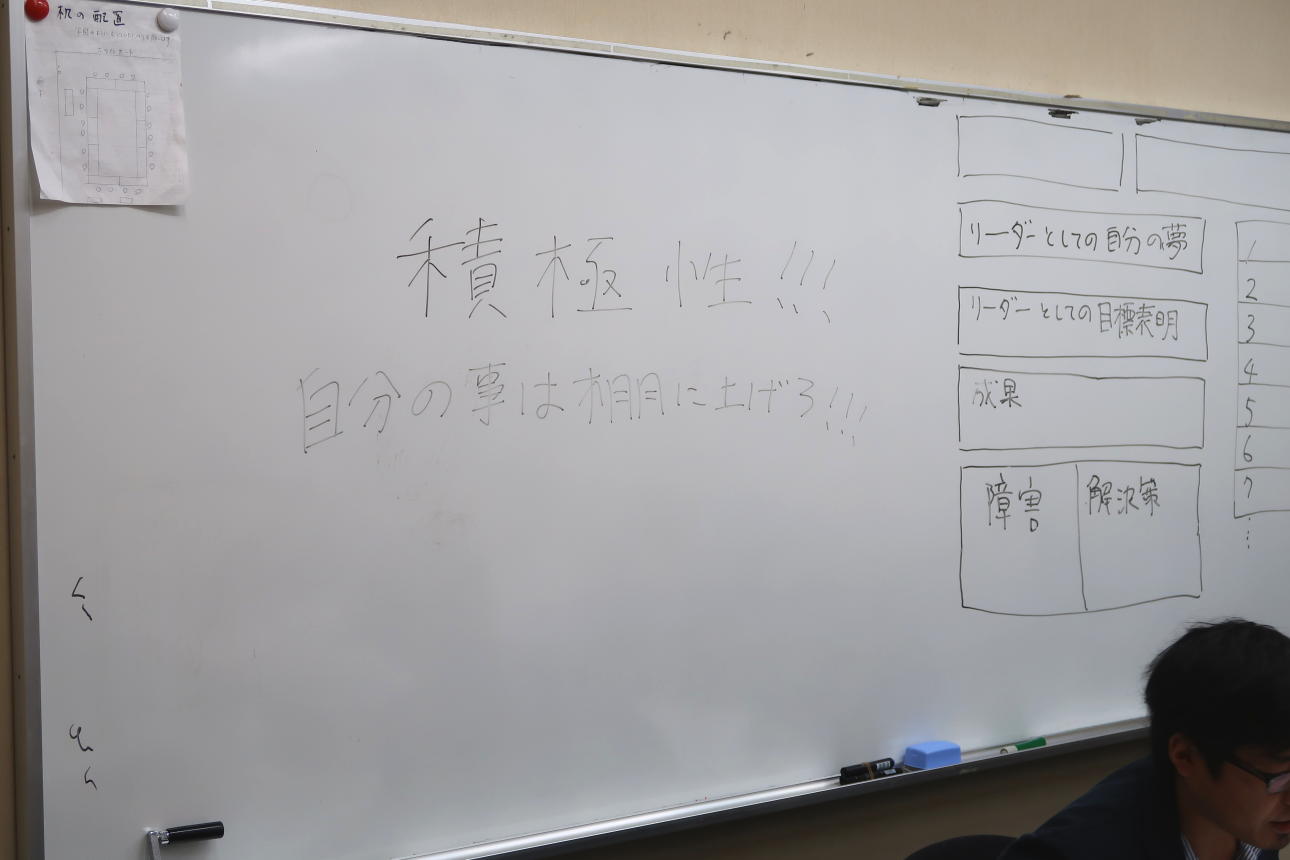 机の配置
積極性!!!
自分の事は棚に上げろ!!!
リーダーとしての自分の夢
リーダーとしての目標表明
成果
障害
解決策
1
2
3
4
5
6
7
⋮